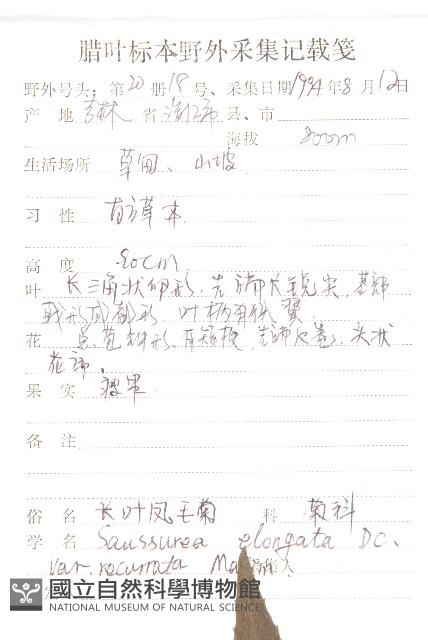 腊叶标本野外采集记载笺
野外号头：第20册18号、采集日期1994年8月12日
产 地 吉林 省 县、市
海拔 800m
生活场所 草甸、山坡
习 性 草本
高 度 80cm
叶 长三角状卵形，先端长锐尖，基部
戟形或 形，叶柄有狭翼
花 总苞 形，有短梗，先端反卷，头状
花
果 实 瘦果
备 注
俗 名 长叶凤毛菊 科 菊科
学 名 Saussurea elongata DC.
var. recurvata Ma
國立自然科學博物館
NATIONAL MUSEUM OF NATURAL SCIENCE